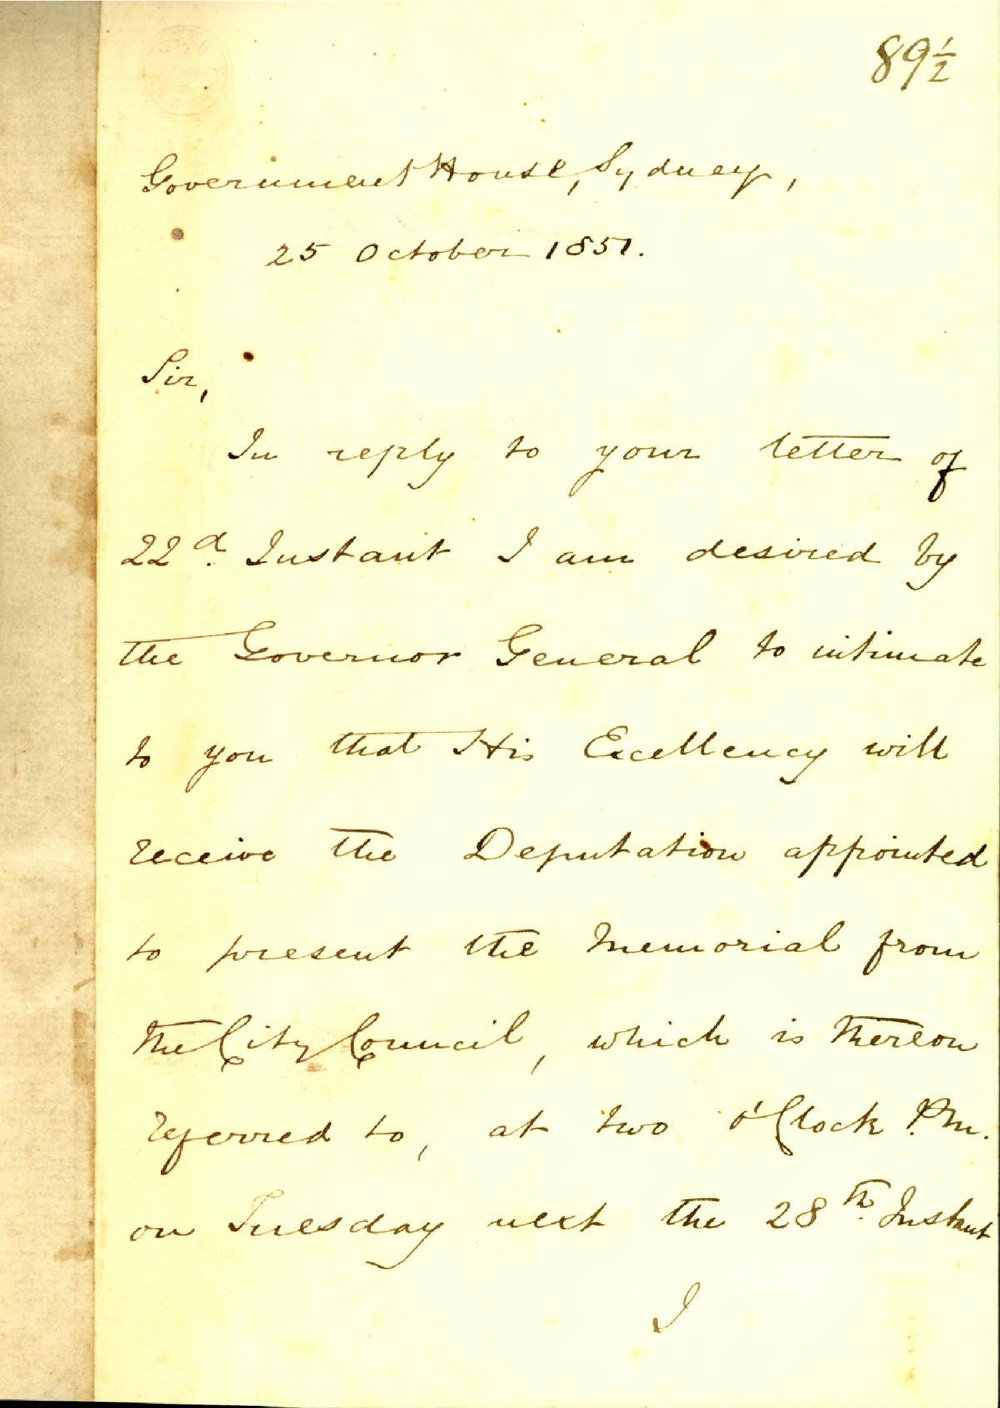 89½
Government House, Sydney,
25 October 1851.
Sir,
In reply to your letter of
22d. Instant I am desired by
the Governor General to intimate
to you that His Excellency will
receive the Deputation appointed
to present the Memorial from
the City Council, which is thereon
referred to, at two o'Clock P.M.
on Tuesday next the 28th. Instant
I